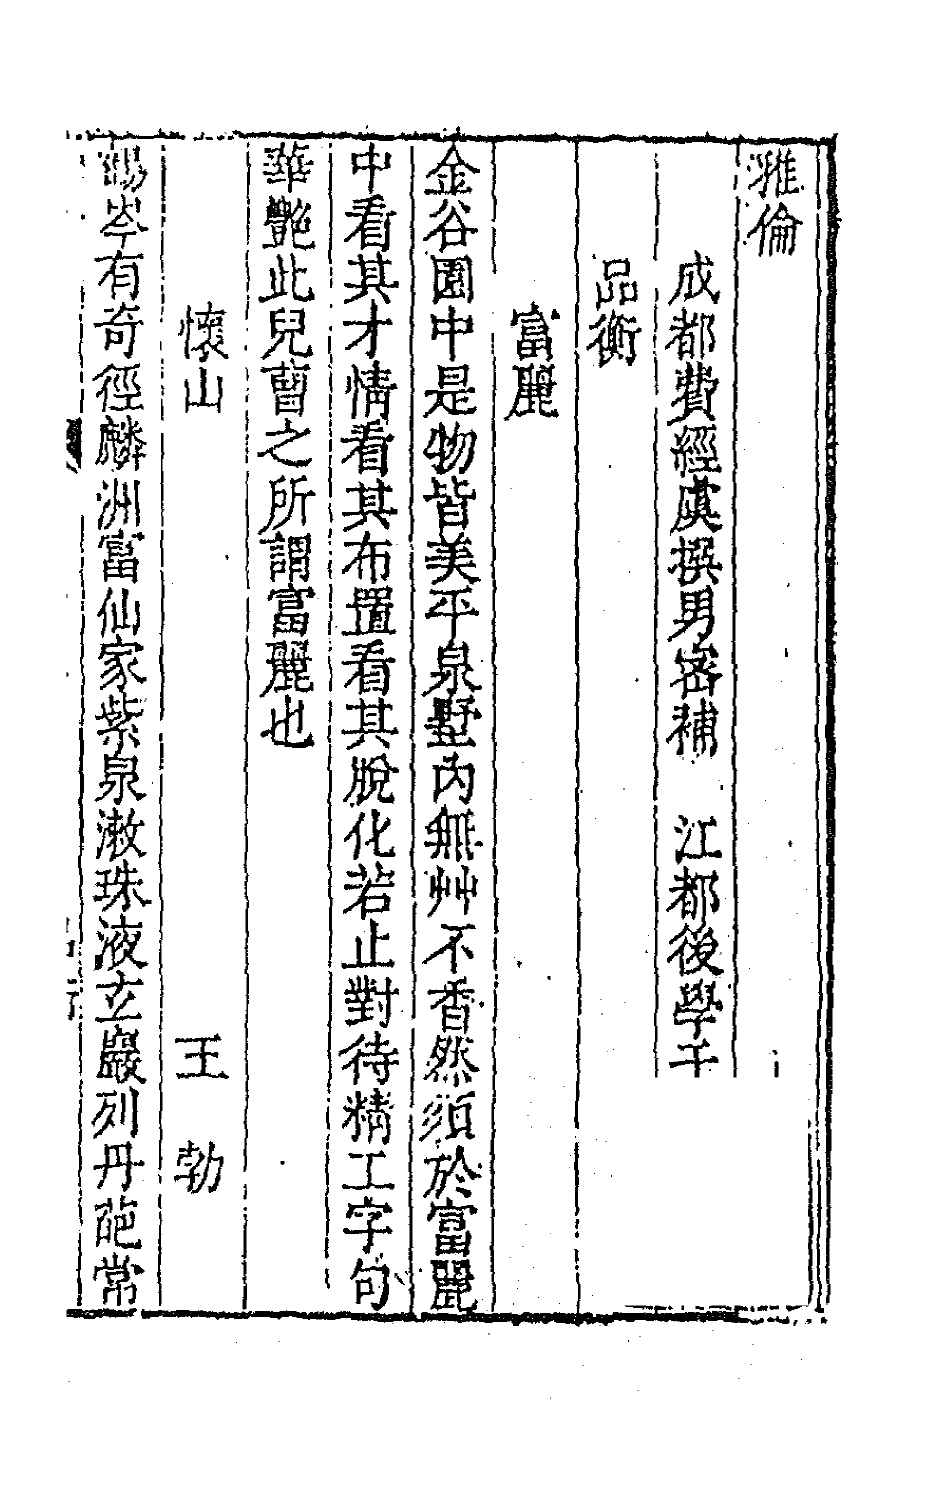 雅倫
成都費經虞撰男密補　江都後學于
品衡
富麗
金谷園中是物皆美平泉墅內無艸不香然須於富麗
中看其才情看其布置看其脫化若止對待精工字句
華艷此兒曹之所謂富麗也
懷山　王　勃
鶴岑有奇徑麟洲富仙家紫泉漱珠液玄巖列丹葩常